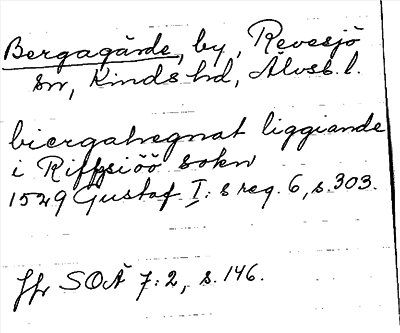 Bergagärde, by, Revesjö
sn, Kinds hd, Älvsb. l.
biergahegnat liggiande
i Riffsiöö sokn
1529 Gustaf I:s reg. 6, s. 303.
Jfr SOÄ 7:2, s. 146.